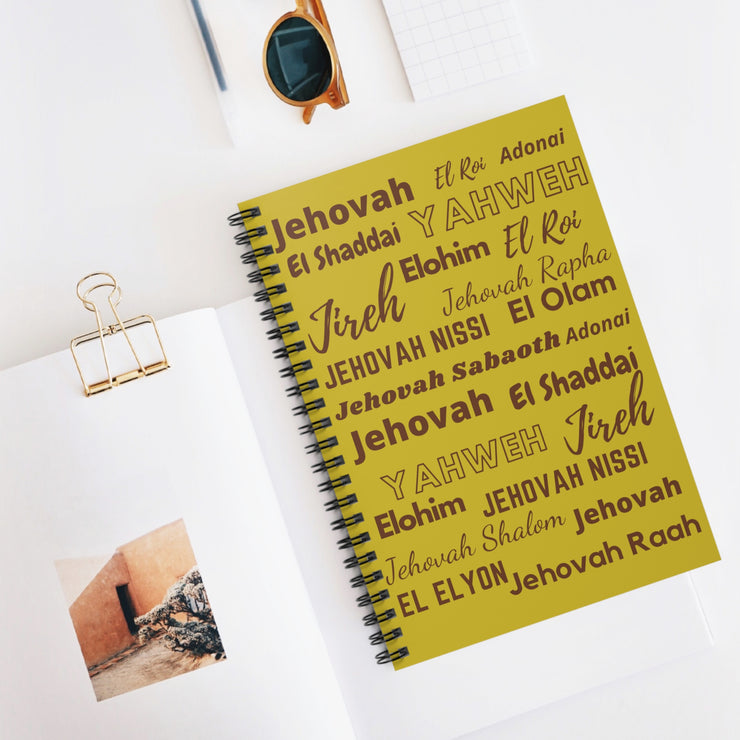 Jehovah El Roi Adonai
El Shaddai YAHWEH
Elohim El Roi
Jireh Jehovah Rapha
JEHOVAH NISSI El Olam
Jehovah Sabaoth Adonai
Jehovah El Shaddai
YAHWEH Jireh
Elohim JEHOVAH NISSI
Jehovah Shalom Jehovah
EL ELYON Jehovah Raah